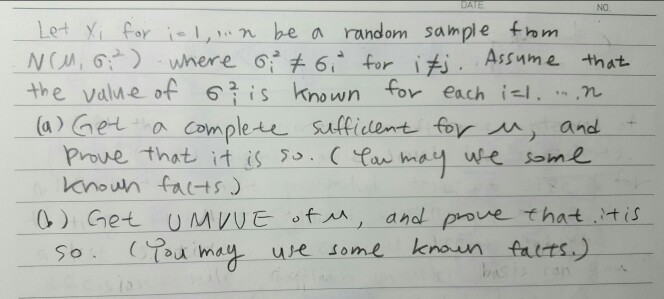 DATE
NO.
Let Xi for i=1, ... n be a random sample from
N(μ, σi²) where σi² ≠ σi² for i≠j. Assume that
the value of σi² is known for each i=1. ... n
(a) Get a complete sufficient for μ, and
prove that it is so. (You may use some
known facts.)
(b) Get UMVUE of μ, and prove that it is
so. (You may use some known facts.)